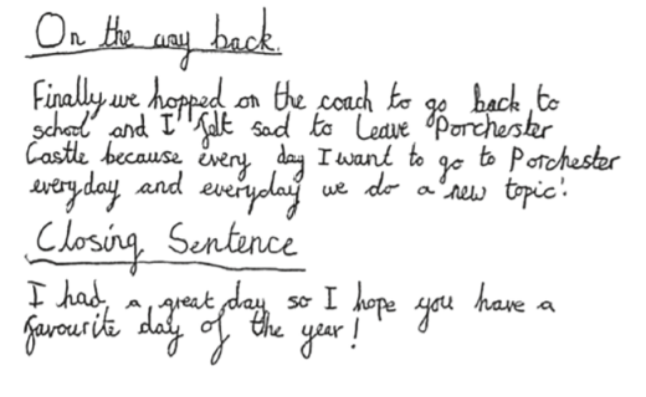 On the way back.
Finally we hopped on the coach to go back to
school and I felt sad to leave Porchester
Castle because every day I want to go to Porchester
everyday and everyday we do a new topic!
Closing Sentence
I had a great day so I hope you have a
favourite day of the year!